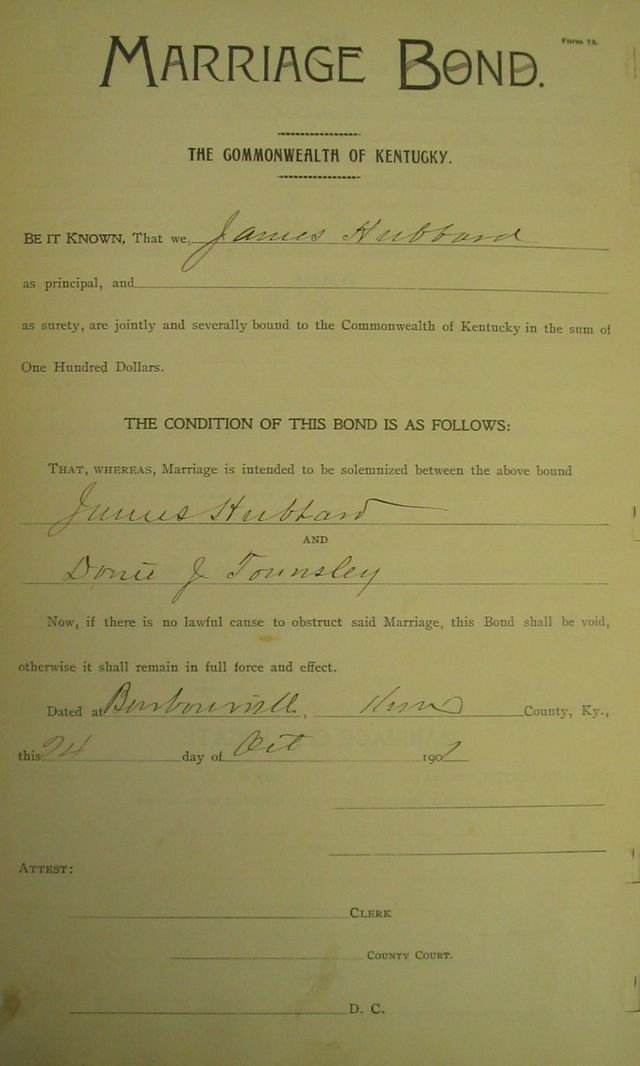 Form 78.
MARRIAGE BOND.
THE COMMONWEALTH OF KENTUCKY.
BE IT KNOWN, That we, James Hubbard
as principal, and
as surety, are jointly and severally bound to the Commonwealth of Kentucky in the sum of
One Hundred Dollars.
THE CONDITION OF THIS BOND IS AS FOLLOWS:
THAT, WHEREAS, Marriage is intended to be solemnized between the above bound
James Hubbard
AND
Donie J Townsley
Now, if there is no lawful cause to obstruct said Marriage, this Bond shall be void,
otherwise it shall remain in full force and effect.
Dated at Barbourville, Knox County, Ky.,
this 24 day of Oct 190
ATTEST:
CLERK
COUNTY COURT.
D. C.